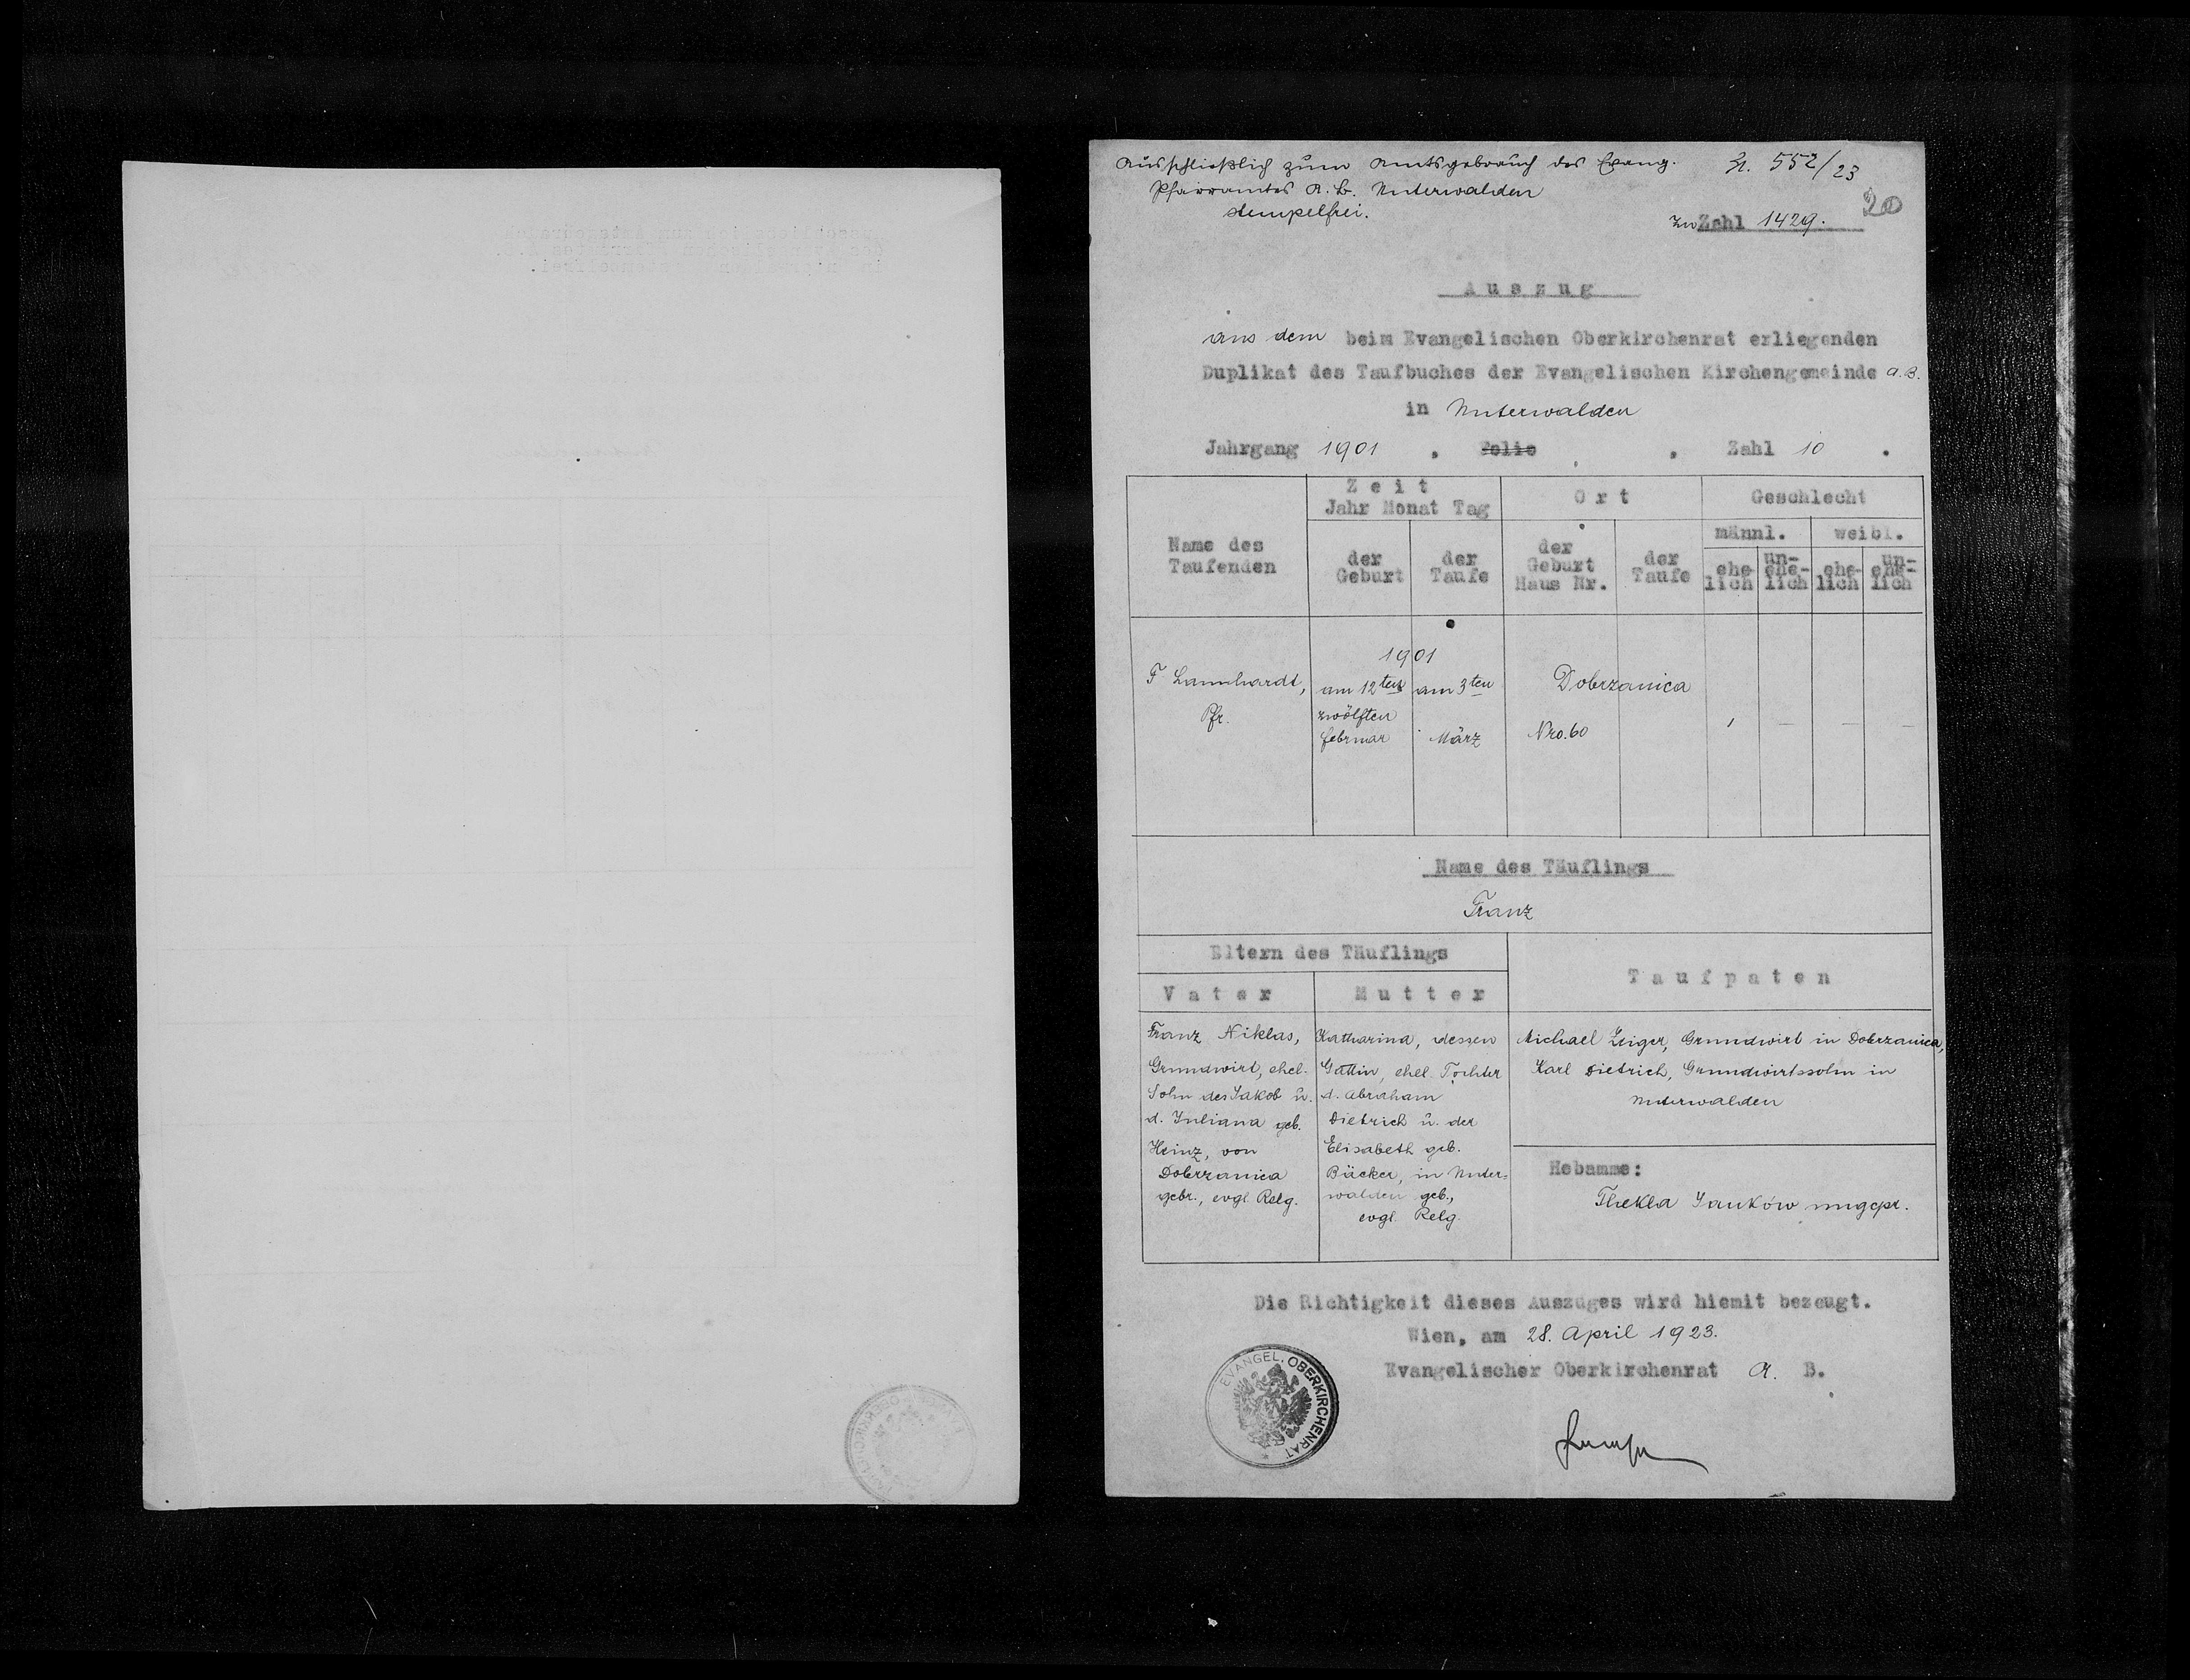 Ausschließlich zum Amtsgebrauch des Evang.
Pfarramtes A. B. Unterwalden
stempelfrei.
Zl. 552/23
20
zu Zahl 1429.
Auszug
aus dem beim Evangelischen Oberkirchenrat erliegenden
Duplikat des Taufbuches der Evangelischen Kirchengemeinde A.B.
in Unterwalden
Jahrgang 1901 , Folio , Zahl 10 .
Name des Taufenden
Zeit
Jahr Monat Tag
der Geburt
der Taufe
Ort
der Geburt Haus Nr.
der Taufe
Geschlecht
männl.
weibl.
ehe-lich
un-ehe-lich
ehe-lich
un-ehe-lich
1901
F Lannhardt,
Pfr.
am 12ten
zwölften
Februar
am 3ten
März
Dobrzanica
Nro. 60
1 — — —
Name des Täuflings
Franz
Eltern des Täuflings
Vater
Mutter
Taufpaten
Franz Niklas,
Grundwirt, ehel.
Sohn des Jakob u.
d. Juliana geb.
Heinz, von
Dobrzanica
gebr., evgl. Relg.
Katharina, dessen
Gattin, ehel. Tochter
d. Abraham
Dietrich u. der
Elisabeth geb.
Bäcker, in Unter=
walden geb.,
evgl. Relg.
Michael Zeiger, Grundwirt in Dobrzanica,
Karl Dietrich, Grundwirtssohn in
Unterwalden
Hebamme:
Thekla Janków ungepr.
Die Richtigkeit dieses Auszuges wird hiemit bezeugt.
Wien, am 28. April 1923.
Evangelischer Oberkirchenrat A. B.
EVANGEL. OBERKIRCHENRAT